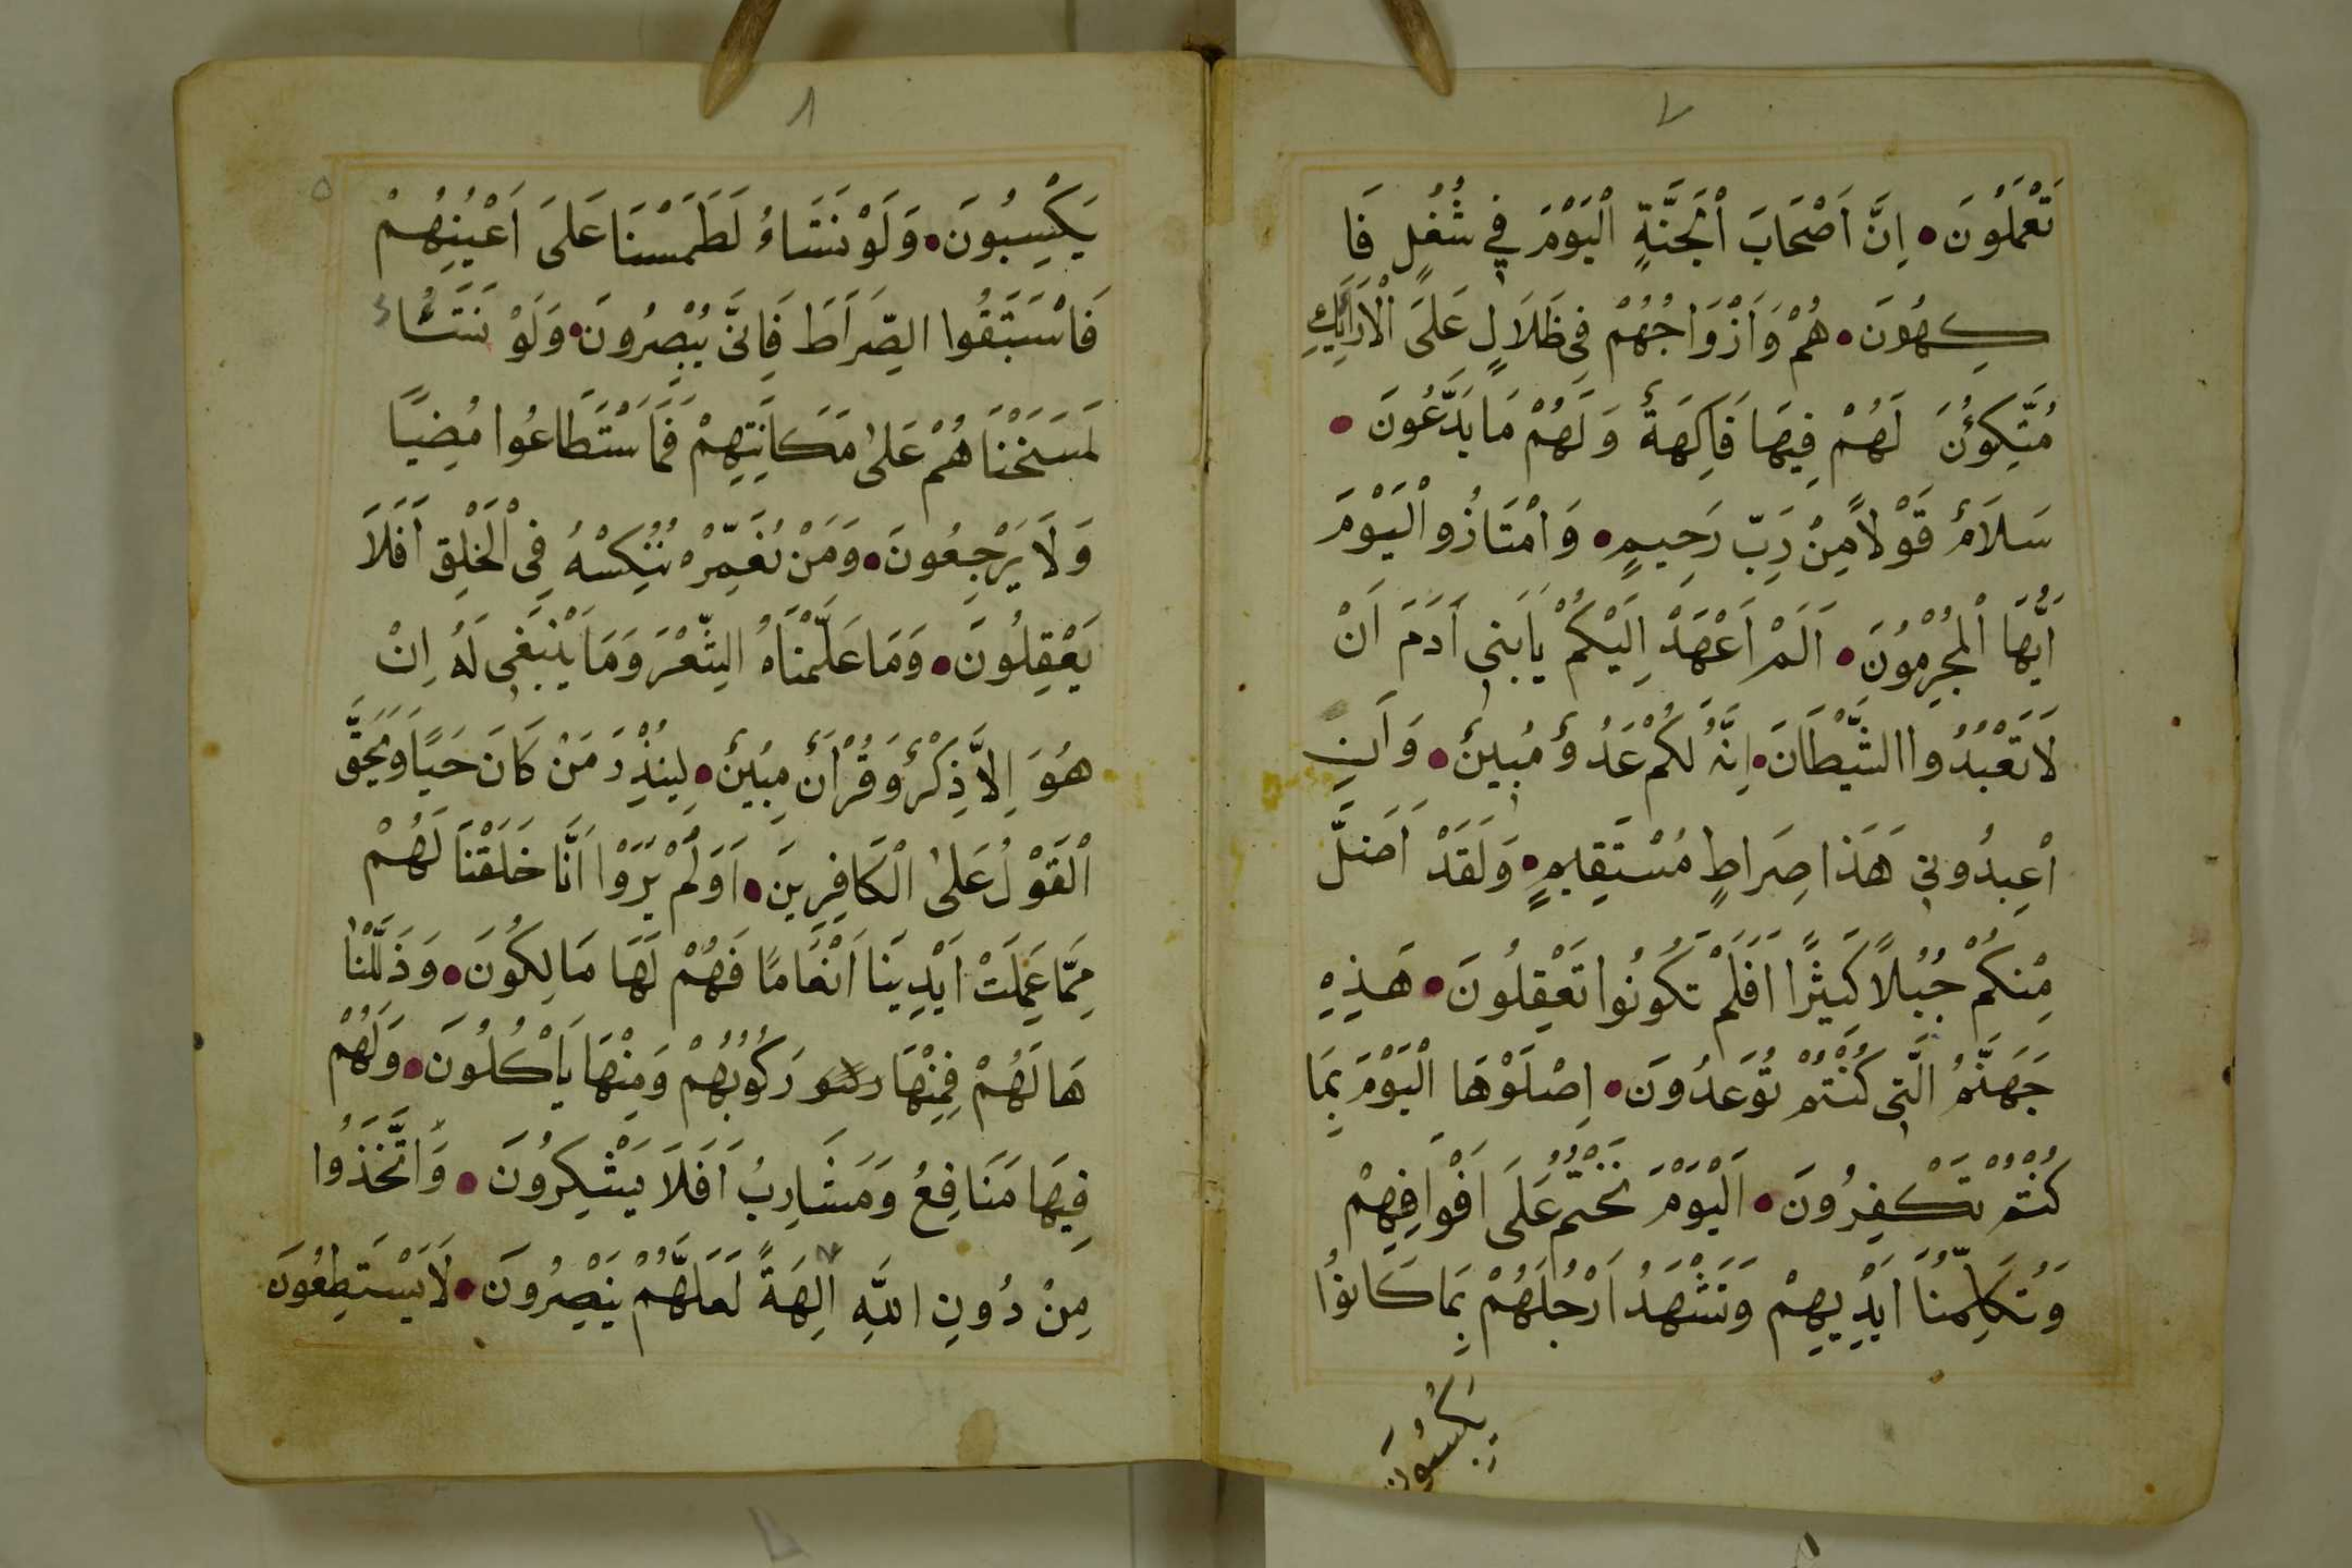 ٧
تَعْمَلُونَ ● اِنَّ اَصْحَابَ اْلجَنَّةِ الْيَوْمَ فِي شُغُلٍ فَا
كِهُونَ ● هُمْ وَاَزْوَاجُهُمْ فِى ظَلَالٍ عَلَى الْاَرَائِكِ
مُتَّكِؤُنَ لَهُمْ فِيهَا فَاكِهَةٌ وَلَهُمْ مَا يَدَّعُونَ ●
سَلَامٌ قَوْلاً مِنْ رَبّ رَحِيمٍ ● وَامْتَازُو الْيَوْمَ
اَيُّهَا الْمُجْرِمُونَ ● اَلَمْ اَعْهَدْ اِلَيْكُمْ يَابَنِى اَدَمَ اَنْ
لَا تَعْبُدُوا الشَّيْطَانَ ● اِنَّهُ لَكُمْ عَدُوٌ مُبِينٌ ● وَاَنِ
اْعبِدُونِي هَذَا صِرَاطٍ مُسْتَقِيمٍ ● وَلَقَدْ اَضَلَّ
مِنْكُمْ جُبُلاً كَثِيرًا اَفَلَمْ تَكُونُوا تَعْقِلُونَ ● هَذِهِ
جَهَنَّمُ الَّتِى كُنْتُمْ تُوَعدُونَ ● اِصْلَوْهَا الْيَوْمَ بِمَا
كُنْتُمْ تَكْفِرُونَ ● اَلْيَوْمَ نَخْتِمُ عَلَى اَفْوَافِهِمْ
وَتُكَلِّمُنَا اَيْدِيهِمْ وَتَشْهَدُ اَرْجُلَهُمْ بِمَا كَانوُا
يَكْسِبُونَ
٨
يَكْسِبُونَ ● وَلَوْ نَشَاءُ لَطَمَسْنَا عَلَى اَعْيُنِهُمْ
فَاسْتَبَقُوا الصِّرَاطَ فَاِنَّى يُبْصِرُونَ ● وَلَوْ نَشَاءُ
لَمَسَخْنَاهُمْ عَلىٰ مَكَانَتِهِمْ فَمَا سْتَطَاعُوا مُضِيًا
وَلَا يَرْجِعُونَ ● وَمَنْ نُعَمِّرْهُ نُنَكِسْهُ فِى اْلخَلْقِ اَفَلَا
يَعْقِلُونَ ● وَمَا عَلَّمْنَاهُ الشِّعْرَ وَمَا يَنْبَغِى لَهُ اِنْ
هُوَ اِلاَّ ذِكْرٌ وَقُرْاَنٌ مُبِينٌ ● لِيُنْذِرَ مَنْ كَانَ حَيًا وَيُحِقَّ
الْقَوْلُ عَلىٰ الْكَافِرِينَ ● اَوَلَمْ يَرَوْا اَنَّا خَلَقْنَا لَهُمْ
مِمَّا عَمِلَتْ اَيْدِينَا اَنْعَامًا فَهُمْ لَهَا مَالِكُونَ ● وَذَلَّلْنَا
هَا لَهُمْ فَمِنْهَا رَكُوبُهُمْ وَمِنْهَا يَاْكُلُونَ ● وَلَهُمْ
فِيهَا مَنَافِعُ وَمَشَارِبُ اَفَلَا يَشْكِرُونَ ● وَاتَّخَذُوا
مِنْ دُونِ اللَّهِ اٰلِهَةً لَعَلَّهُمْ يَنْصِرُونَ ● لَا يَسْتَطِعُونَ